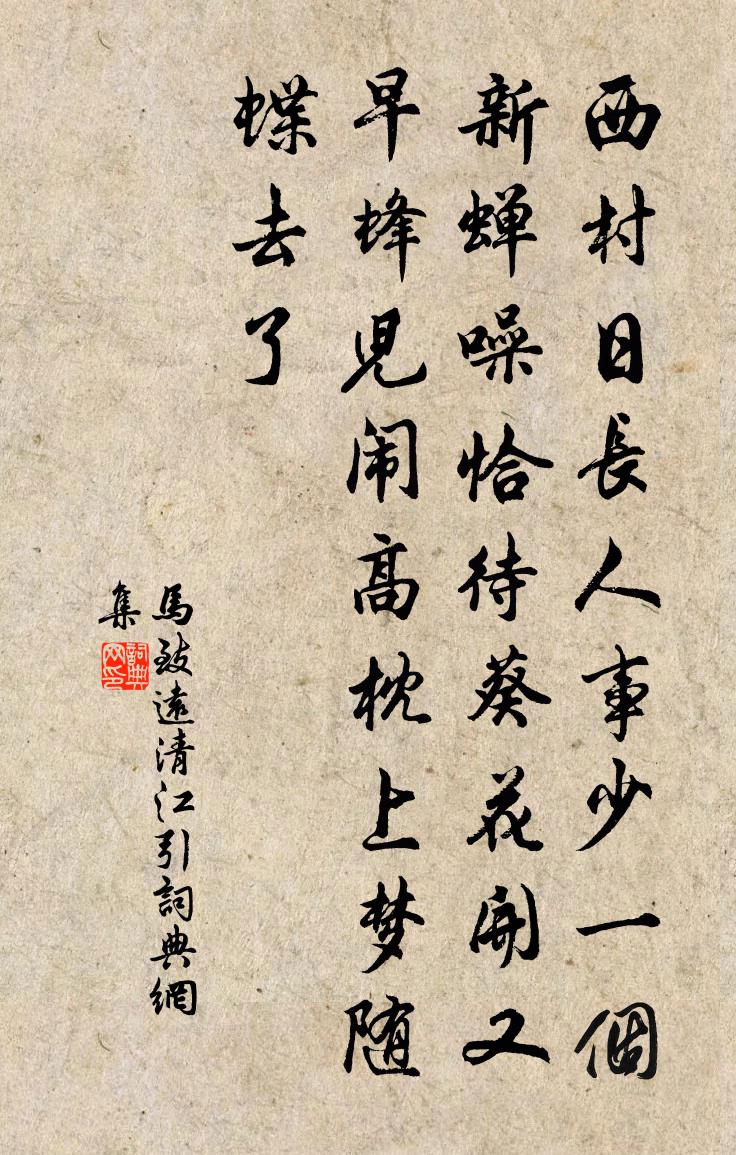 西村日長人事少一個
新蝉噪恰待葵花開又
早蜂児闹高枕上梦随
蝶去了
馬致遠清江引詞典網
集
詞典网印